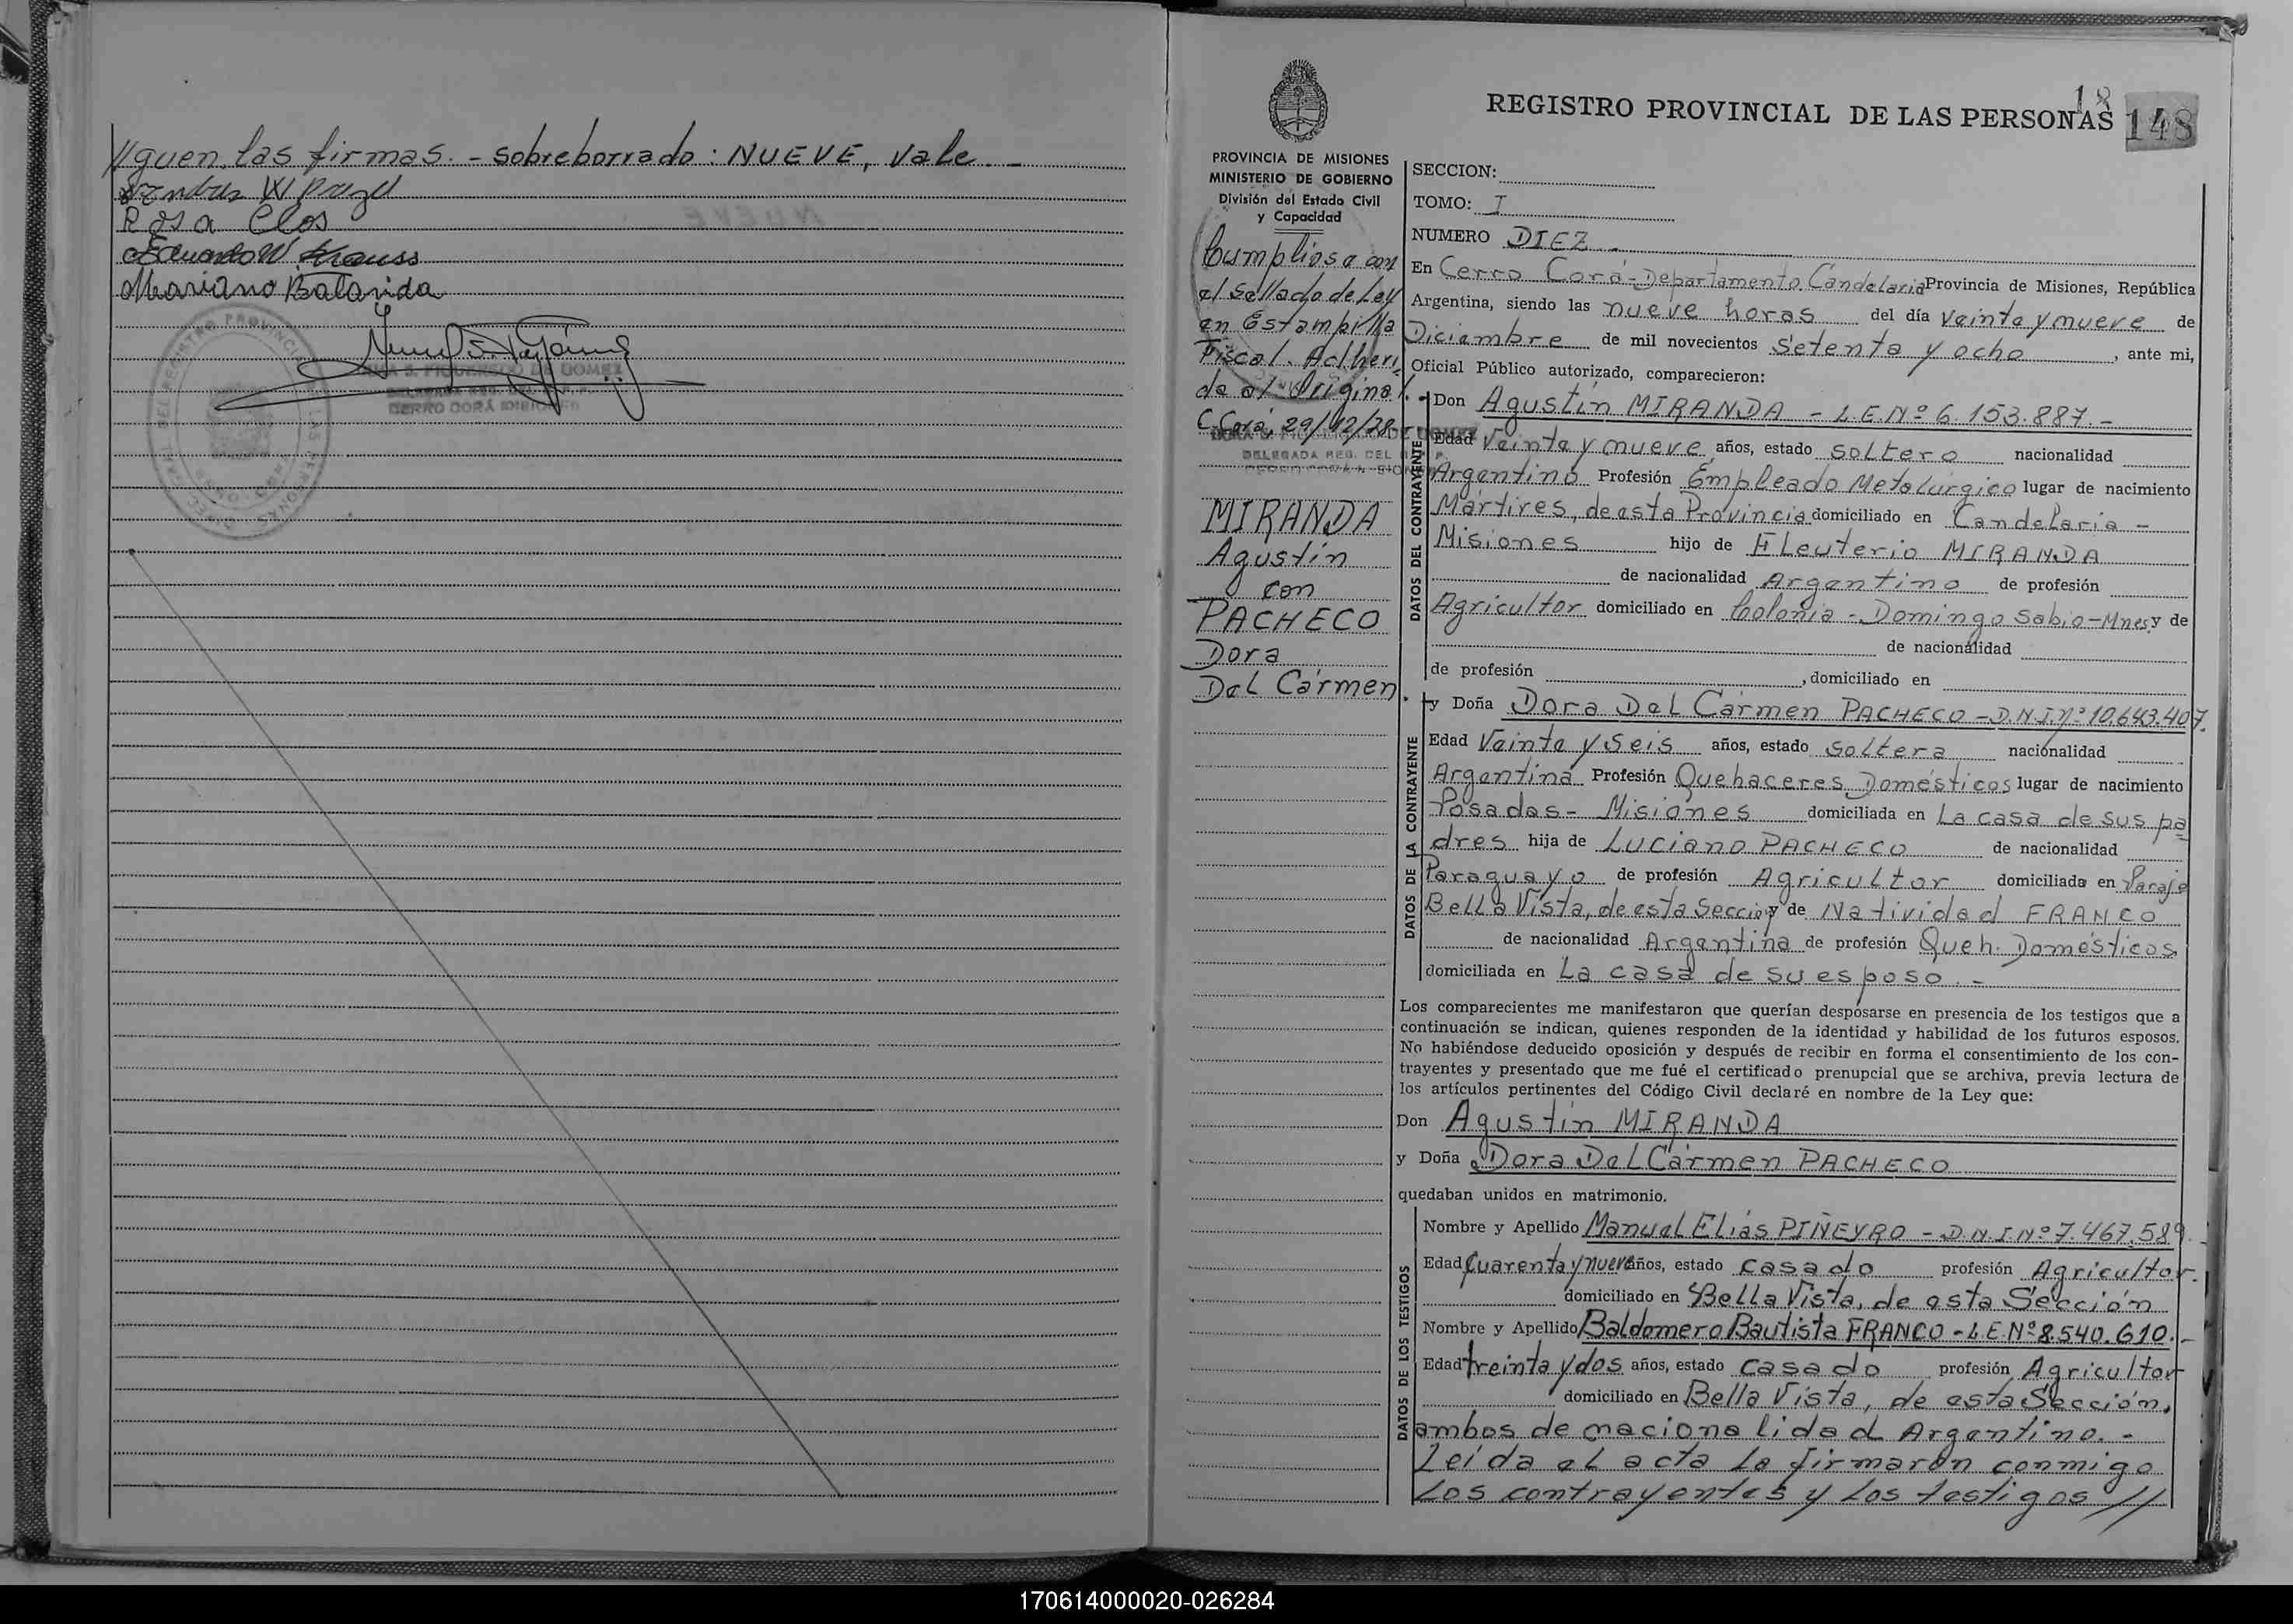 //guen las firmas. - sobreborrado: NUEVE, vale. -
Rosa Clos
Eduardo W. Krauss
Mariano Batarida
DELEGADA REG.
CERRO CORÁ
REGISTRO PROVINCIAL DE LAS PERSONAS
18
148
PROVINCIA DE MISIONES
MINISTERIO DE GOBIERNO
División del Estado Civil
y Capacidad
Cumpliose con
el Sellado de Ley
en Estampilla
Fiscal Adheri
da al Original.
C. Corá, 29/12/78.-
DELEGADA REG. DEL
MIRANDA
Agustín
con
PACHECO
Dora
Del Cármen.
SECCION:
TOMO: I
NUMERO DIEZ -
En Cerro Corá - Departamento Candelaria Provincia de Misiones, República
Argentina, siendo las nueve horas del día veinte y nueve de
Diciembre de mil novecientos setenta y ocho, ante mi,
Oficial Público autorizado, comparecieron:
DATOS DEL CONTRAYENTE
Don Agustín MIRANDA - L.E.Nº 6.153.887.-
Edad Veinte y nueve años, estado soltero nacionalidad
Argentino Profesión Empleado Metalurgico lugar de nacimiento
Mártires, de esta Provincia domiciliado en Candelaria -
Misiones hijo de Eleuterio MIRANDA
de nacionalidad Argentino de profesión
Agricultor domiciliado en Colonia - Domingo Sabio - Mnes. y de
de nacionalidad
de profesión , domiciliado en
DATOS DE LA CONTRAYENTE
y Doña Dora Del Cármen PACHECO - D.N.I.Nº 10.643.407.
Edad Veinte y seis años, estado soltera nacionalidad
Argentina Profesión Quehaceres Domésticos lugar de nacimiento
Posadas - Misiones domiciliada en La casa de sus pa
dres hija de Luciano PACHECO de nacionalidad
Paraguayo de profesión Agricultor domiciliada en Paraje
Bella Vista, de esta Sección y de Natividad FRANCO
de nacionalidad Argentina de profesión Queh. Domésticos
domiciliada en La casa de su esposo. -
Los comparecientes me manifestaron que querían desposarse en presencia de los testigos que a
continuación se indican, quienes responden de la identidad y habilidad de los futuros esposos.
No habiéndose deducido oposición y después de recibir en forma el consentimiento de los con-
trayentes y presentado que me fué el certificado prenupcial que se archiva, previa lectura de
los artículos pertinentes del Código Civil declaré en nombre de la Ley que:
Don Agustín MIRANDA
y Doña Dora Del Cármen PACHECO
quedaban unidos en matrimonio.
DATOS DE LOS TESTIGOS
Nombre y Apellido Manuel Elias PIÑEYRO - D.N.I.Nº 7.467.589.-
Edad Cuarenta y nueve años, estado casado profesión Agricultor.
domiciliado en Bella Vista, de esta Sección
Nombre y Apellido Baldomero Bautista FRANCO - L.E.Nº 8.540.610.-
Edad treinta y dos años, estado casado profesión Agricultor
domiciliado en Bella Vista, de esta Sección,
ambos de nacionalidad Argentino. -
Leída el acta la firmaron conmigo
Los contrayentes y los testigos //
170614000020-026284